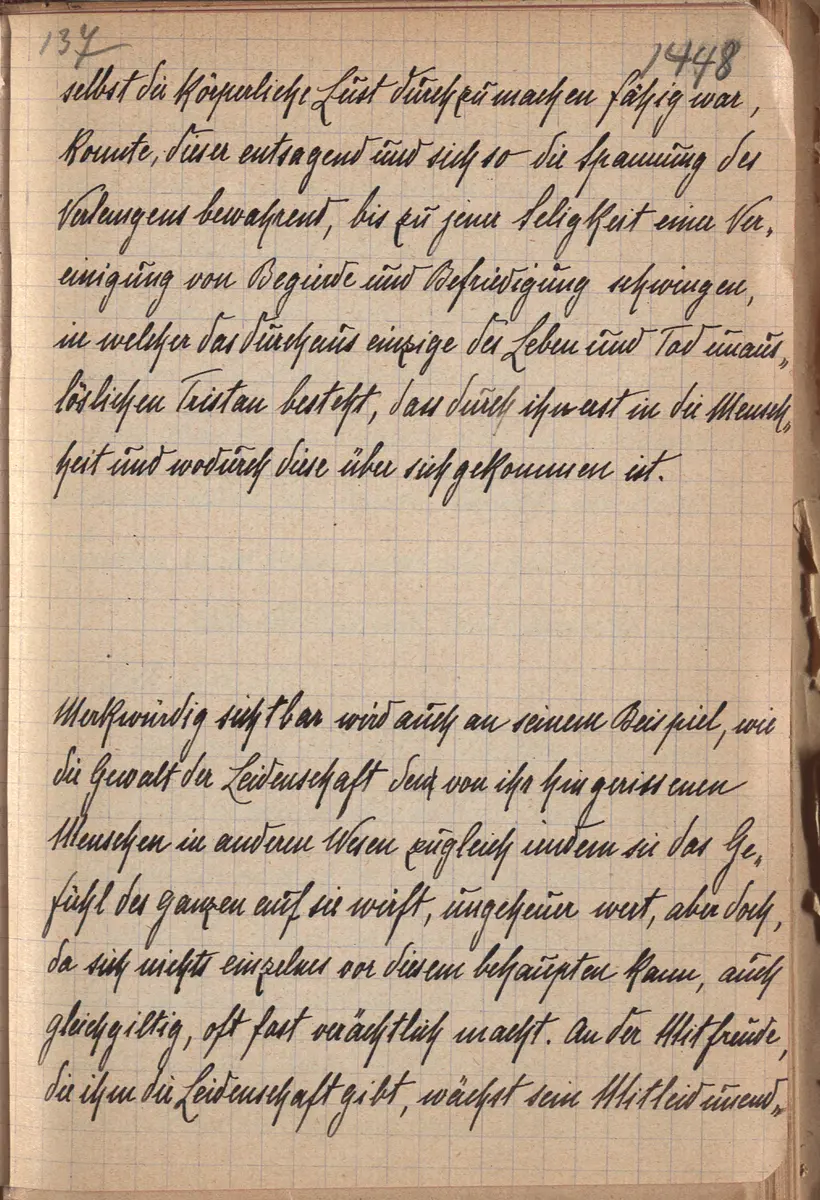 137
1448
selbst die körperliche Lust durchzumachen fähig war,
konnte, dieser entsagend und sich so die Spannung des
Verlangens bewahrend, bis zu jener Seligkeit einer Ver-
einigung von Begierde und Befriedigung schwingen,
in welcher das durchaus einzige des Leben und Tod unaus-
löslichen Tristan besteht, das durch ihn erst in die Mensch-
heit und wodurch diese über sich gekommen ist.
Merkwürdig sichtbar wird auch an seinem Beispiel, wie
die Gewalt der Leidenschaft dem von ihr hingerissenen
Menschen die anderen Wesen zugleich indem sie das Ge-
fühl des ganzen auf sie wirft, ungeheuer wert, aber doch,
da sich nichts einzelnes vor diesem behaupten kann, auch
gleichgiltig, oft fast verächtlich macht. An der Mitfreude,
die ihm die Leidenschaft gibt, wächst sein Mitleid unend-